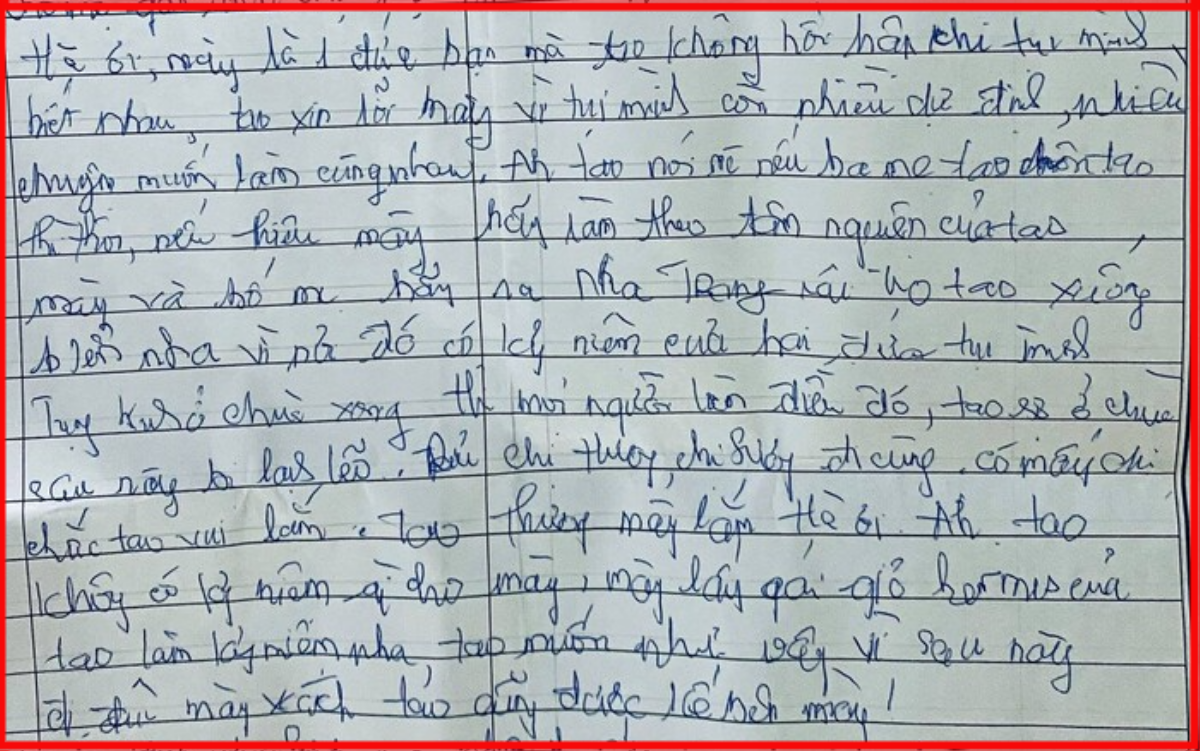 Hà ơi, mày là 1 đứa bạn mà tao không hối hận khi tụi mình
biết nhau, tao xin lỗi mày vì tụi mình còn nhiều dự định, nhiều
chuyện muốn làm cùng nhau. Ah tao nói nè nếu ba mẹ tao chôn tao
thì thôi, nếu thiêu mày hãy làm theo tâm nguyện của tao
mày và bố mẹ hãy ra nha Trang rải tro tao xuống
biển nha vì nơi đó có kỷ niệm của hai đứa tụi mình
ở chùa xong thì mọi người làm điều đó, tao sợ ở chùa
sau này bị lạnh lẽo. chị thúy, chị Sương đi cùng. có mấy chị
chắc tao vui lắm. tao thương mày lắm Hà ơi. Ah tao
không có kỷ niệm gì cho mày, mày lấy cái giỏ hermes của
tao làm kỷ niệm nha, tao muốn như vậy vì sau này
đi đâu mày xách tao cũng được kế bên mày!